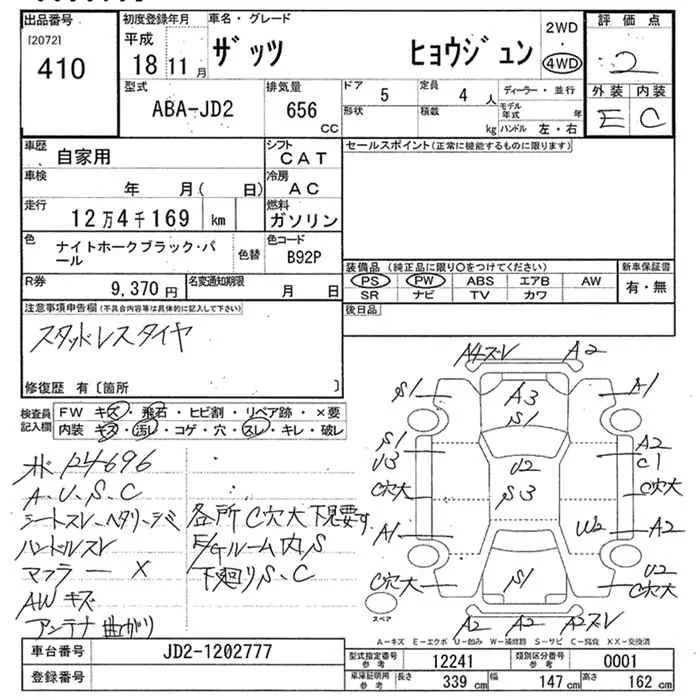 出品番号
[2072]
410
初度登録年月
平成
18 11月
車名・グレード
ザッツ ヒョウジュン
2WD
4WD
評価点
2
外装 内装
E C
型式
ABA-JD2
排気量
656
CC
ドア 5
定員 4 人
形状
積載 kg
ディーラー・並行
モデル年式 年
ハンドル 左・右
車歴
自家用
シフト
CAT
セールスポイント(正常に機能するものに限ります)
車検
年 月( 日)
冷房
AC
走行
12万4千169 km
燃料
ガソリン
色
ナイトホークブラック・パ
ール
色替
色コード
B92P
装備品 (純正品に限り〇をつけてください)
新車保証書
PS PW ABS エアB AW
有・無
SR ナビ TV カワ
R券
9,370 円
名変通知期限
月 日
後日品
注意事項申告欄(不具合内容等は具体的に記入して下さい)
スタッドレスタイヤ
修復歴 有〔箇所 〕
検査員
記入欄
FW キズ・飛石・ヒビ割・リペア跡・×要
内装 キズ・汚レ・コゲ・穴・スレ・キレ・破レ
P4696
A.U.S.C
シートスレ・ヘタリ・シミ
ハンドルスレ
マフラー X
AWキズ
アンテナ曲がり
各所C穴大下見要す
E/Gルーム内S
下廻りS.C
A4ズレ A2
S1 A3 A1
S1
S1 A2
U3 U2 C1
C穴大 S3 C穴大
A1 W2 A2
U2
C穴大 S1 C穴大
スペア
A2 A2 A2ズレ
A-キズ E-エクボ U-凹み W-補修跡 S-サビ C-腐食 XX-交換済
車台番号
JD2-1202777
型式指定番号
参考
12241
類別区分番号
参考
0001
登録番号
車庫証明用
参考
長さ 339 cm
幅 147 cm
高さ 162 cm